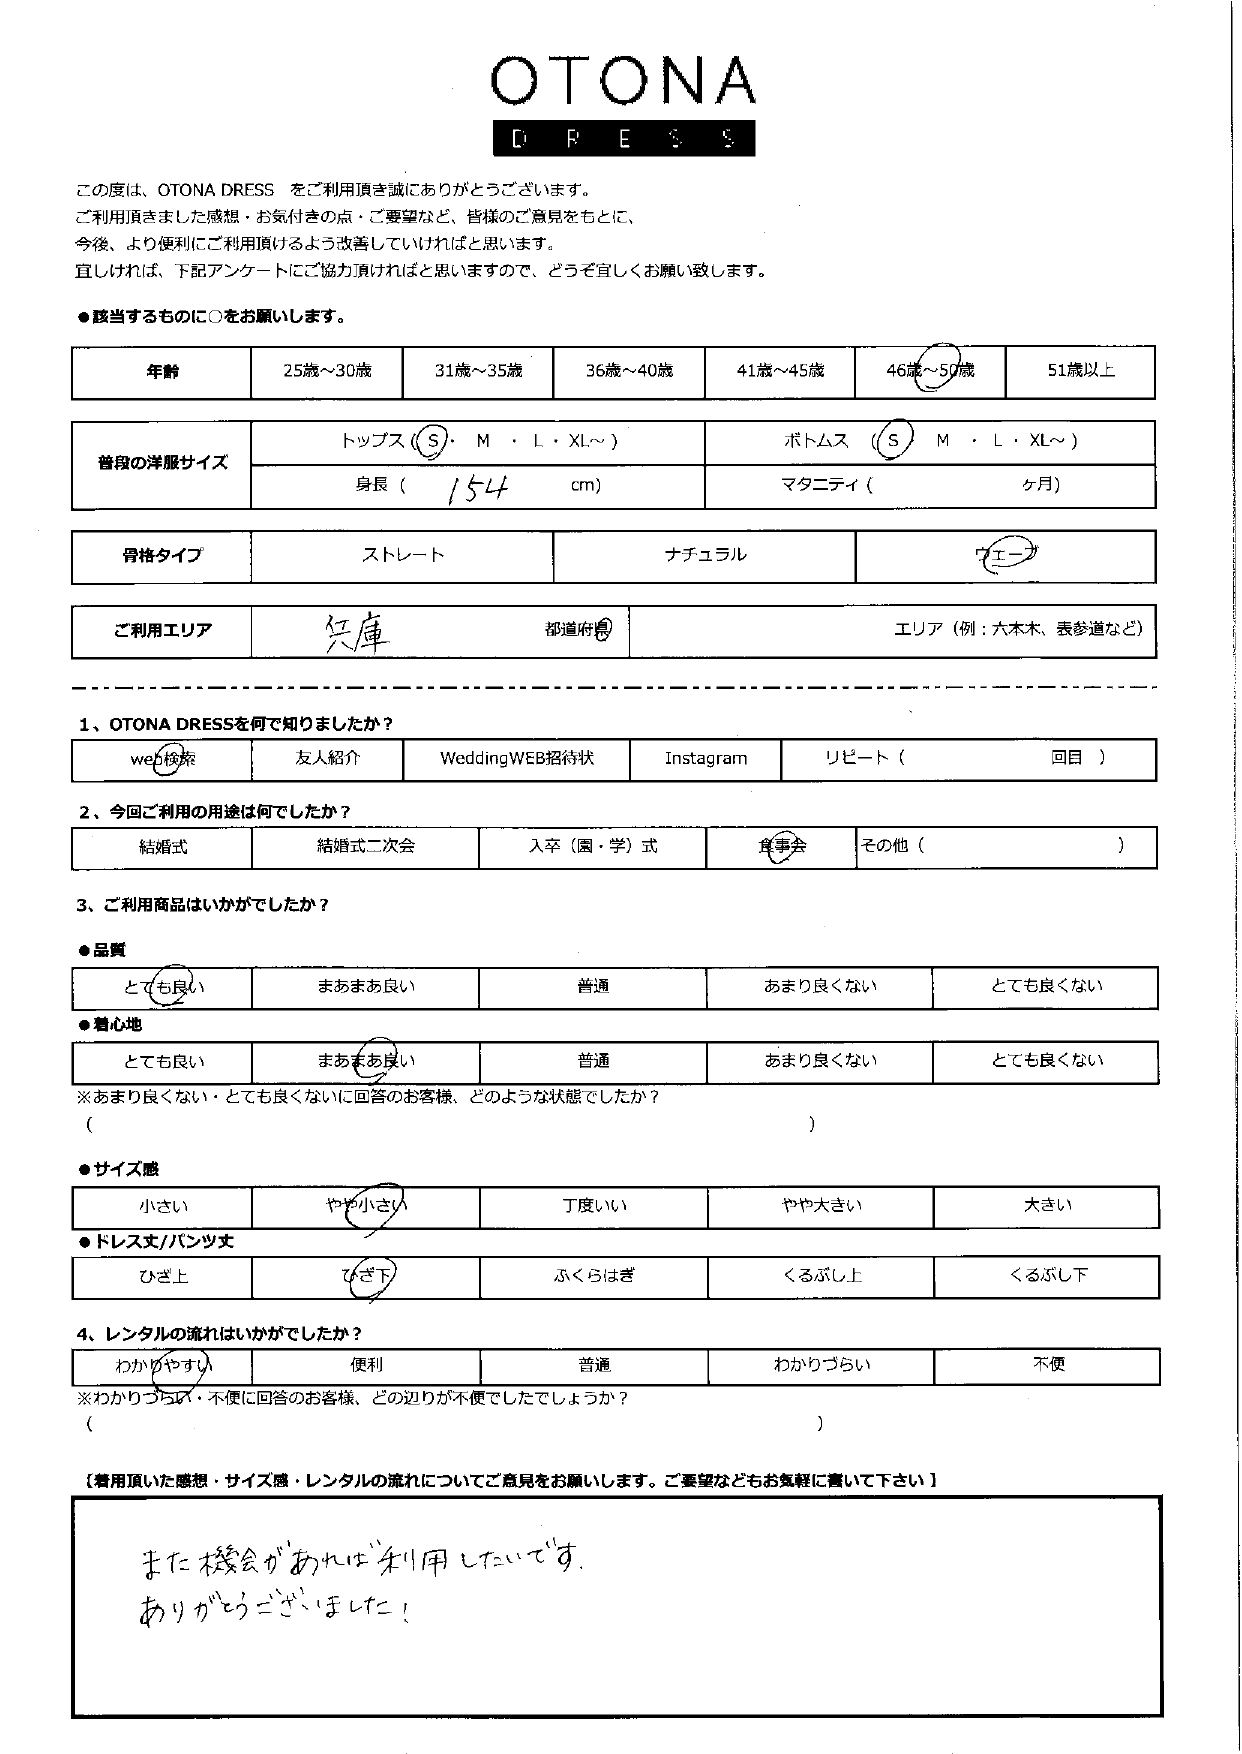 OTONA
DRESS
この度は、OTONA DRESS をご利用頂き誠にありがとうございます。
ご利用頂きました感想・お気付きの点・ご要望など、皆様のご意見をもとに、
今後、より便利にご利用頂けるよう改善していければと思います。
宜しければ、下記アンケートにご協力頂ければと思いますので、どうぞ宜しくお願い致します。
●該当するものに○をお願いします。
年齢 25歳～30歳 31歳～35歳 36歳～40歳 41歳～45歳 46歳～50歳 51歳以上
普段の洋服サイズ トップス (S・ M ・ L ・ XL～ ) ボトムス (S M ・ L ・ XL～ )
身長 ( 154 cm) マタニティ ( ケ月)
骨格タイプ ストレート ナチュラル ウェーブ
ご利用エリア 兵庫 都道府県 エリア（例：六本木、表参道など）
1、OTONA DRESSを何で知りましたか？
web検索 友人紹介 WeddingWEB招待状 Instagram リピート（ 回目 ）
2、今回ご利用の用途は何でしたか？
結婚式 結婚式二次会 入卒（園・学）式 食事会 その他（ ）
3、ご利用商品はいかがでしたか？
●品質
とても良い まあまあ良い 普通 あまり良くない とても良くない
●着心地
とても良い まあまあ良い 普通 あまり良くない とても良くない
※あまり良くない・とても良くないに回答のお客様、どのような状態でしたか？
( )
●サイズ感
小さい やや小さい 丁度いい やや大きい 大きい
●ドレス丈/パンツ丈
ひざ上 ひざ下 ふくらはぎ くるぶし上 くるぶし下
4、レンタルの流れはいかがでしたか？
わかりやすい 便利 普通 わかりづらい 不便
※わかりづらい・不便に回答のお客様、どの辺りが不便でしたでしょうか？
( )
【着用頂いた感想・サイズ感・レンタルの流れについてご意見をお願いします。ご要望などもお気軽に書いて下さい】
また機会があれば利用したいです.
ありがとうございました!